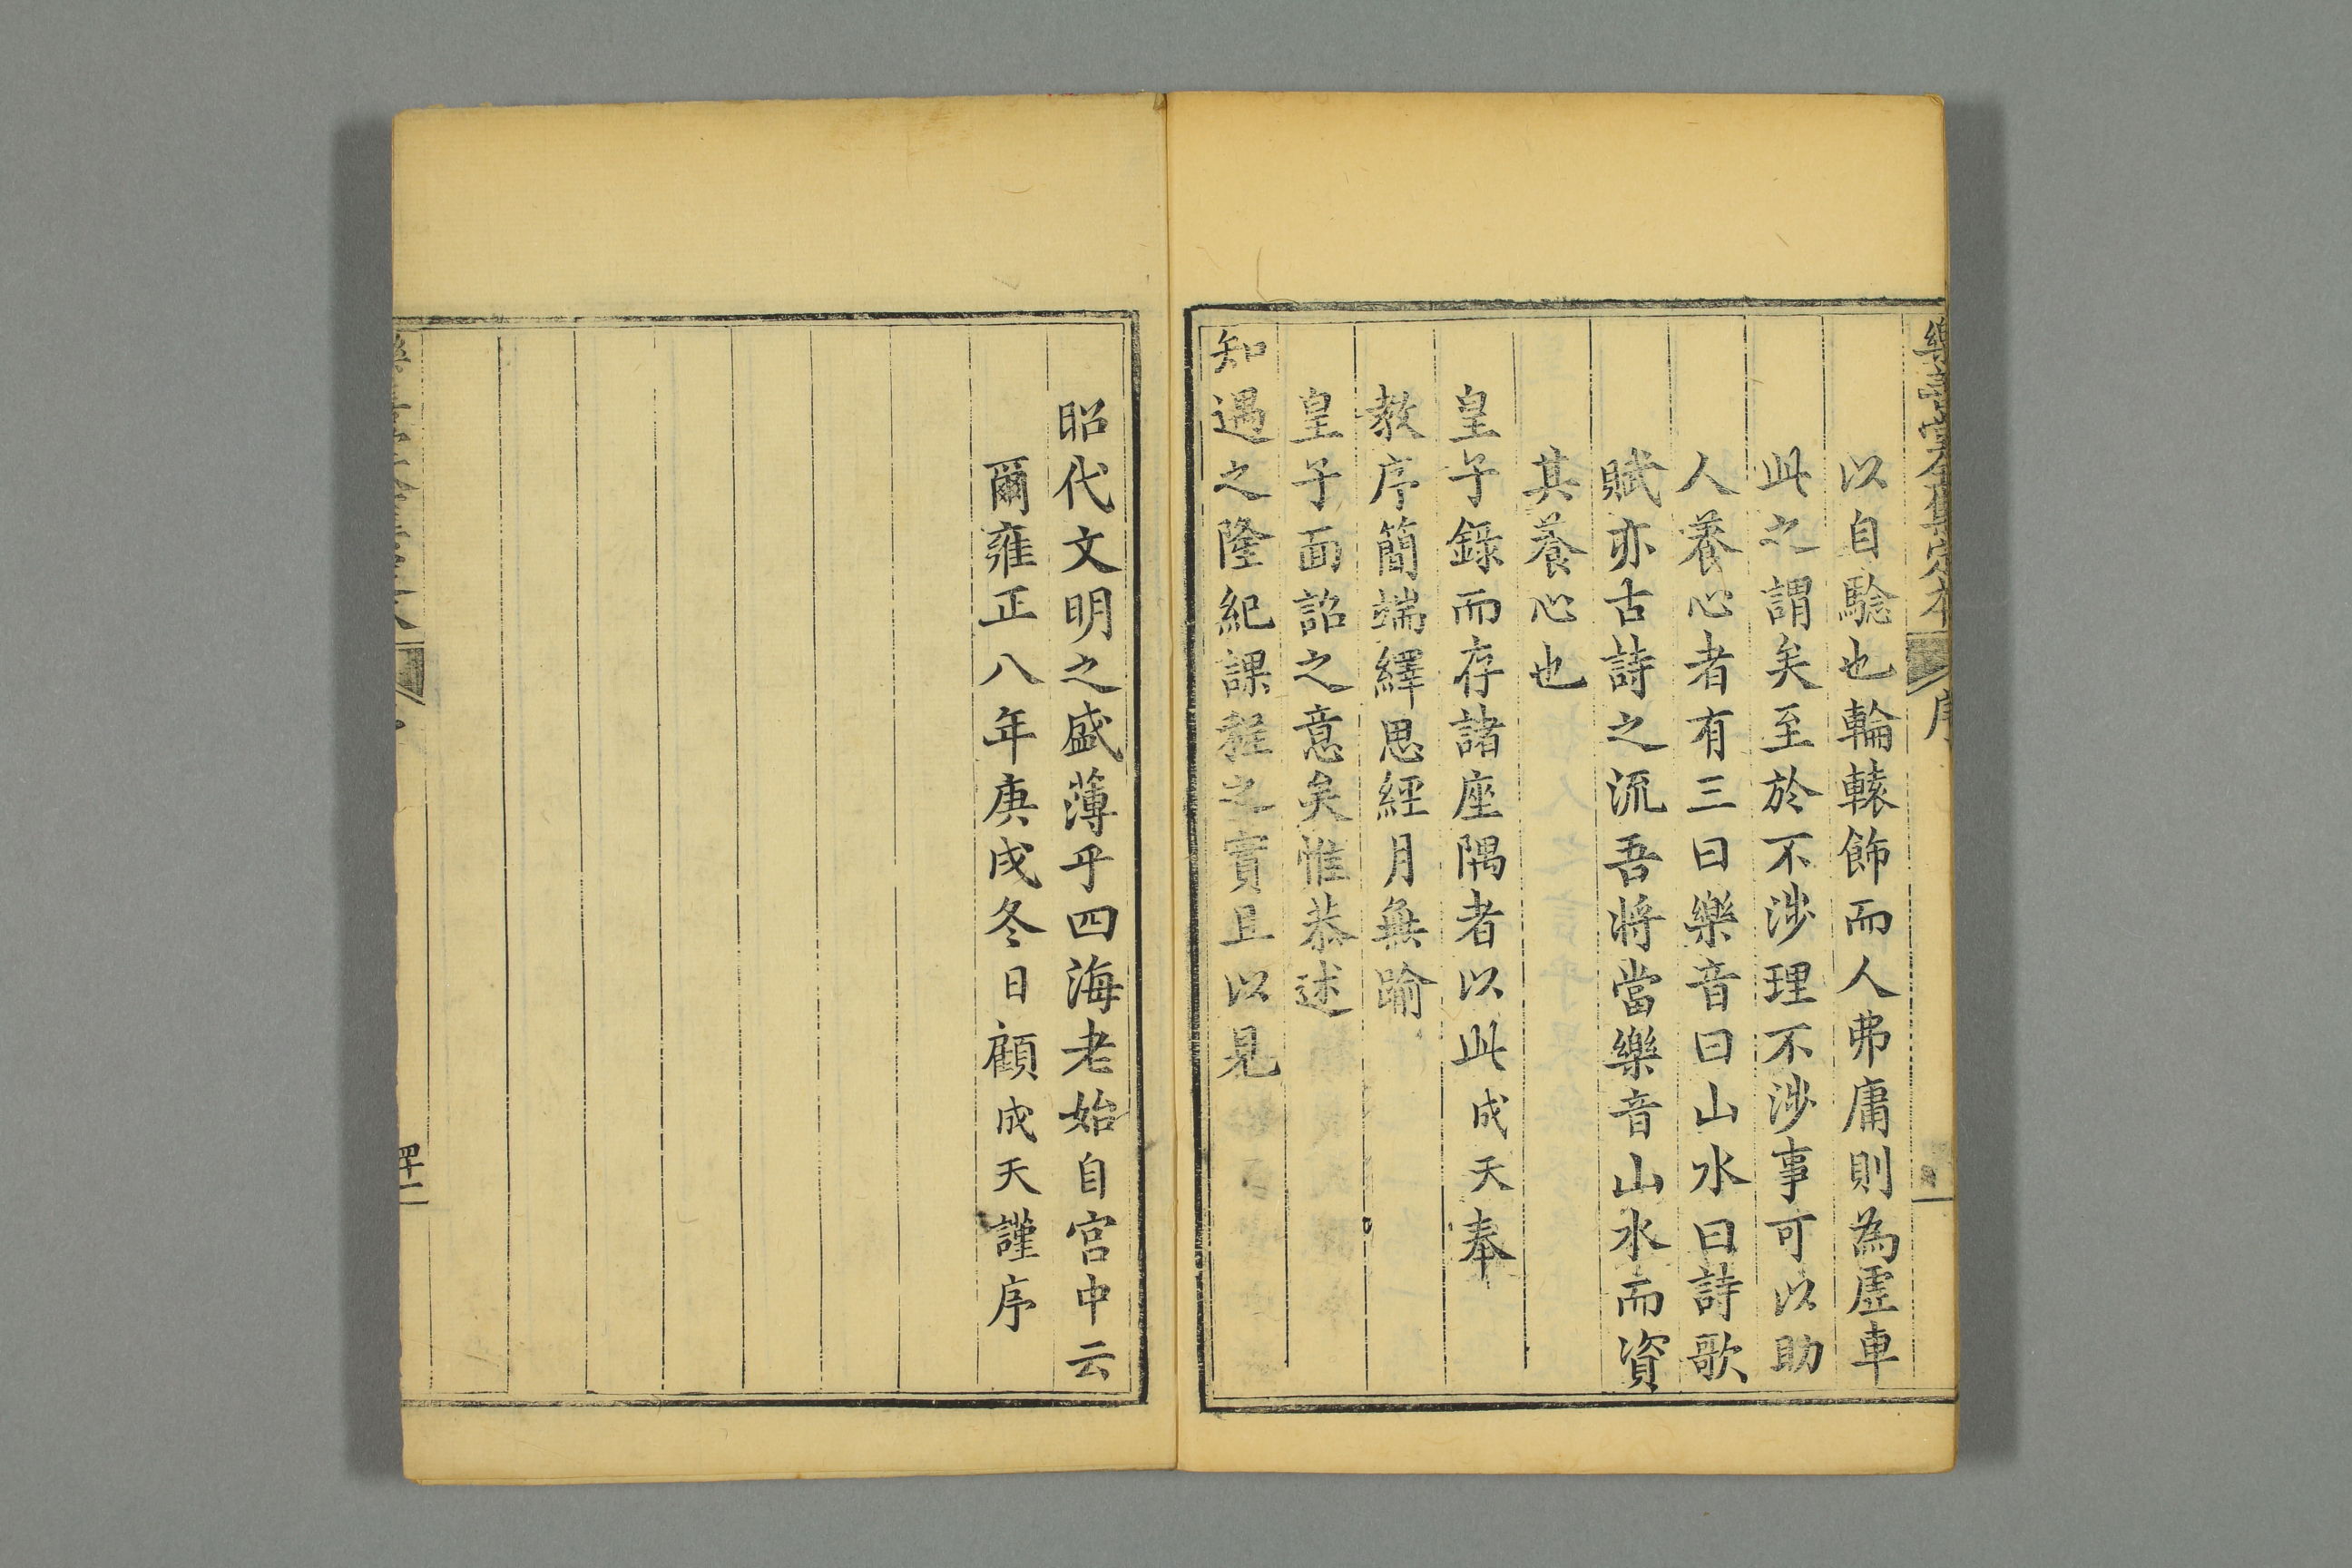 樂善堂全集定本 序
以自騐也輪轅飾而人弗庸則為虛車
此之謂矣至於不渉理不渉事可以助
人養心者有三曰樂音曰山水曰詩歌
賦亦古詩之流吾將當樂音山水而資
其養心也
皇子錄而存諸座隅者以此成天奉
教序簡端繹思經月無踰
皇子面詔之意矣惟恭述
知遇之隆紀課程之實且以見
昭代文明之盛薄乎四海老始自宮中云
爾雍正八年庚戌冬日顧成天謹序